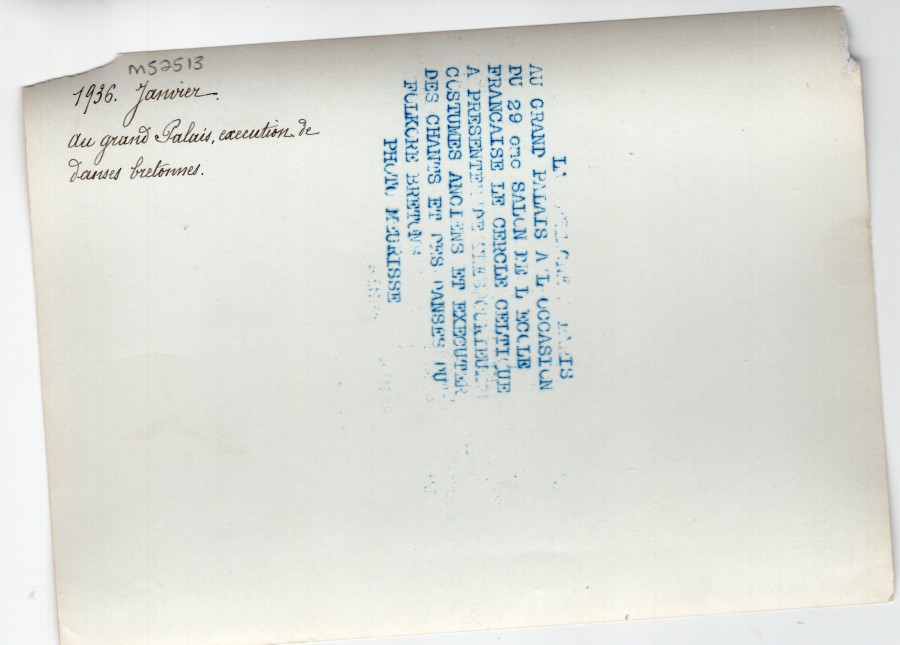 m52513
1936. Janvier.
Au grand Palais, execution de
danses bretonnes.
L'
AU GRAND PALAIS A L OCCASION
DU 29 eme SALON DE L ECOLE
FRANCAISE LE CERCLE CELTIQUE
A PRESENTE DE
COSTUMES ANCIENS ET EXECUTER
DES CHANTS ET DES DANSES DU
FOLKORE BRETON
PHOTO MEURISSE